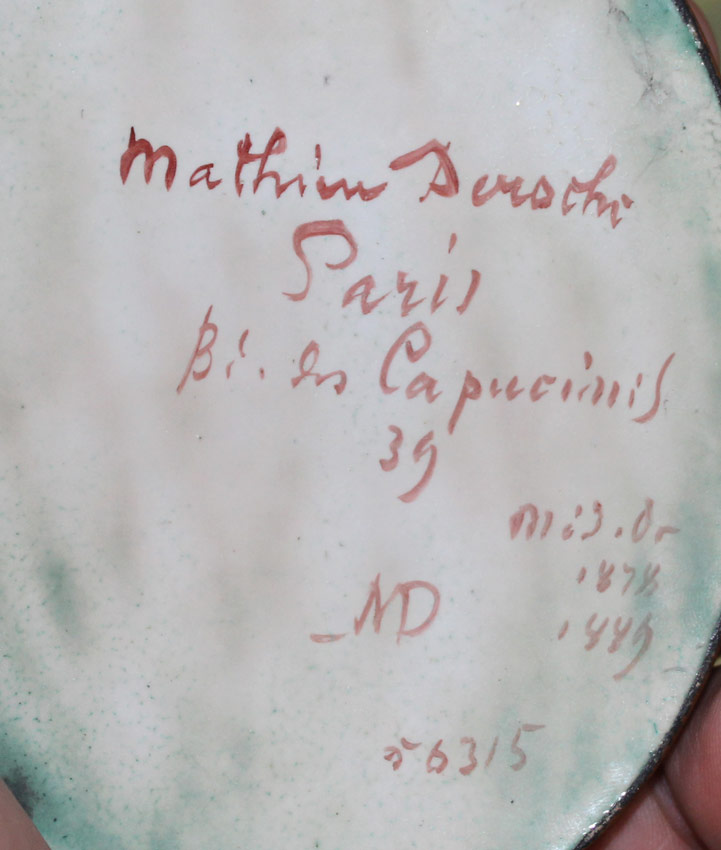 Mathieu Deroche
Paris
Bd. des Capucines
39
Méd. Or
1878
1889
MD
56315